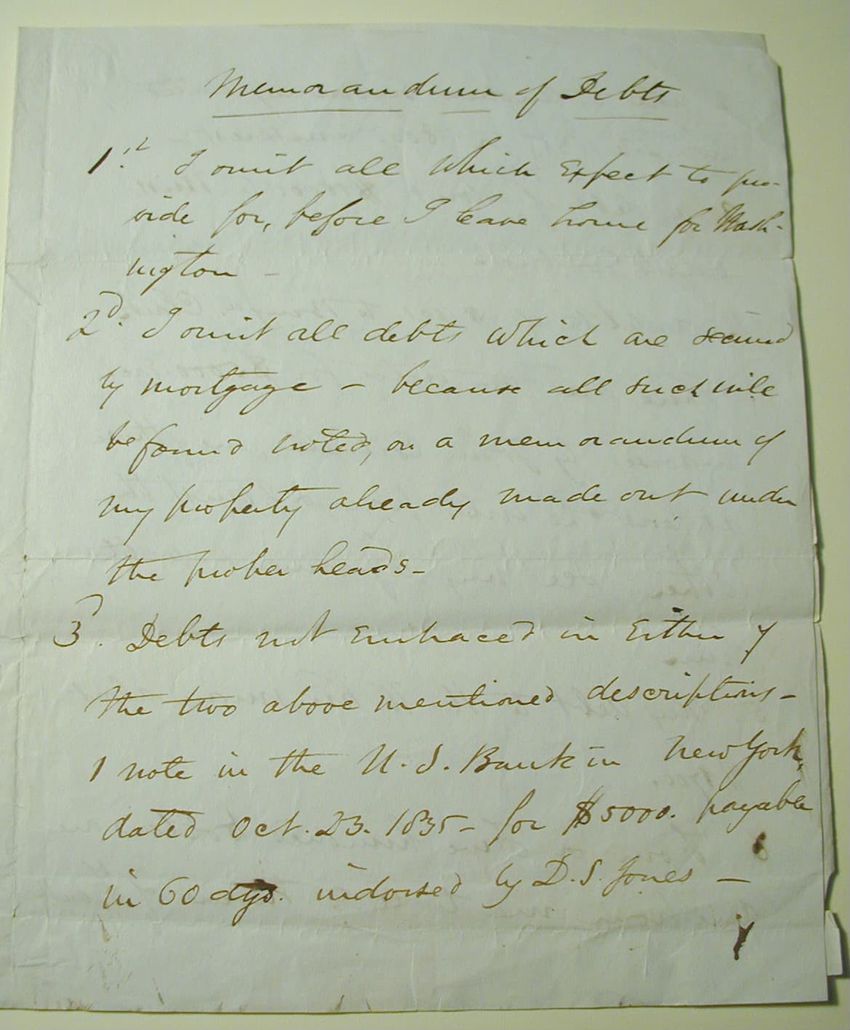 Memorandum of Debts
1st. I omit all which Expect to pro-
vide for, before I leave home for Wash-
ington -
2d. I omit all debts which are secured
by mortgage - because all such will
be found noted, on a memorandum of
my property already made out under
the proper heads -
3d. Debts not Embraced in Either of
the two above mentioned descriptions -
1 note in the U.S. Bank in New York,
dated Oct. 23. 1835 - for $5000. payable
in 60 dys. indorsed by D.S. Jones -